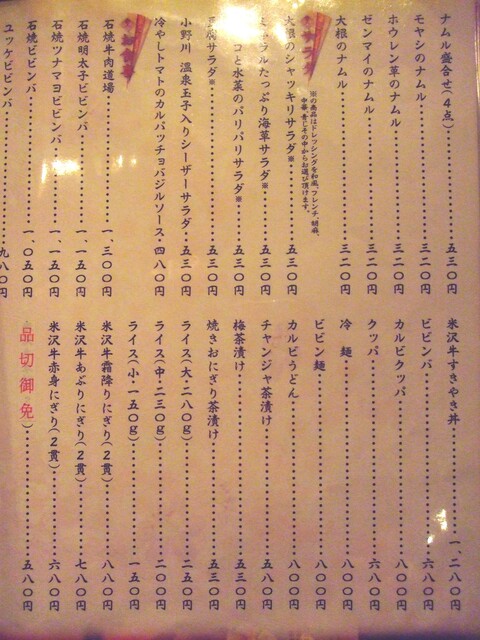 ナムル盛合せ(4点)・・・五三〇円
モヤシのナムル・・・三二〇円
ホウレン草のナムル・・・三二〇円
ゼンマイのナムル・・・三二〇円
大根のナムル・・・三二〇円
サラダ
※の商品はドレッシングを和風、フレンチ、胡麻、
中華、青じその中からお選び頂けます。
大根のシャッキリサラダ※・・・五三〇円
ミネラルたっぷり海草サラダ※・・・五三〇円
コと水菜のパリパリサラダ※・・・五三〇円
豆腐サラダ※・・・五三〇円
小野川 温泉玉子入りシーザーサラダ・・・五三〇円
冷やしトマトのカルパッチョバジルソース・・・四八〇円
石焼牛肉道場・・・一、三〇〇円
石焼明太子ビビンバ・・・一、一五〇円
石焼ツナマヨビビンバ・・・一、一五〇円
石焼ビビンバ・・・一、〇五〇円
ユッケビビンバ・・・九八〇円
米沢牛すきやき丼・・・一、二八〇円
ビビンバ・・・六八〇円
カルビクッパ・・・八〇〇円
クッパ・・・六八〇円
冷麺・・・八〇〇円
ビビン麺・・・八〇〇円
カルビうどん・・・八〇〇円
チャンジャ茶漬け・・・五八〇円
梅茶漬け・・・五三〇円
焼きおにぎり茶漬け・・・五三〇円
ライス(大・二八〇g)・・・二五〇円
ライス(中・二三〇g)・・・二〇〇円
ライス(小・一五〇g)・・・一五〇円
米沢牛霜降りにぎり(2貫)・・・八〇〇円
米沢牛あぶりにぎり(2貫)・・・七八〇円
米沢牛赤身にぎり(2貫)・・・六八〇円
品切御免)・・・五八〇円